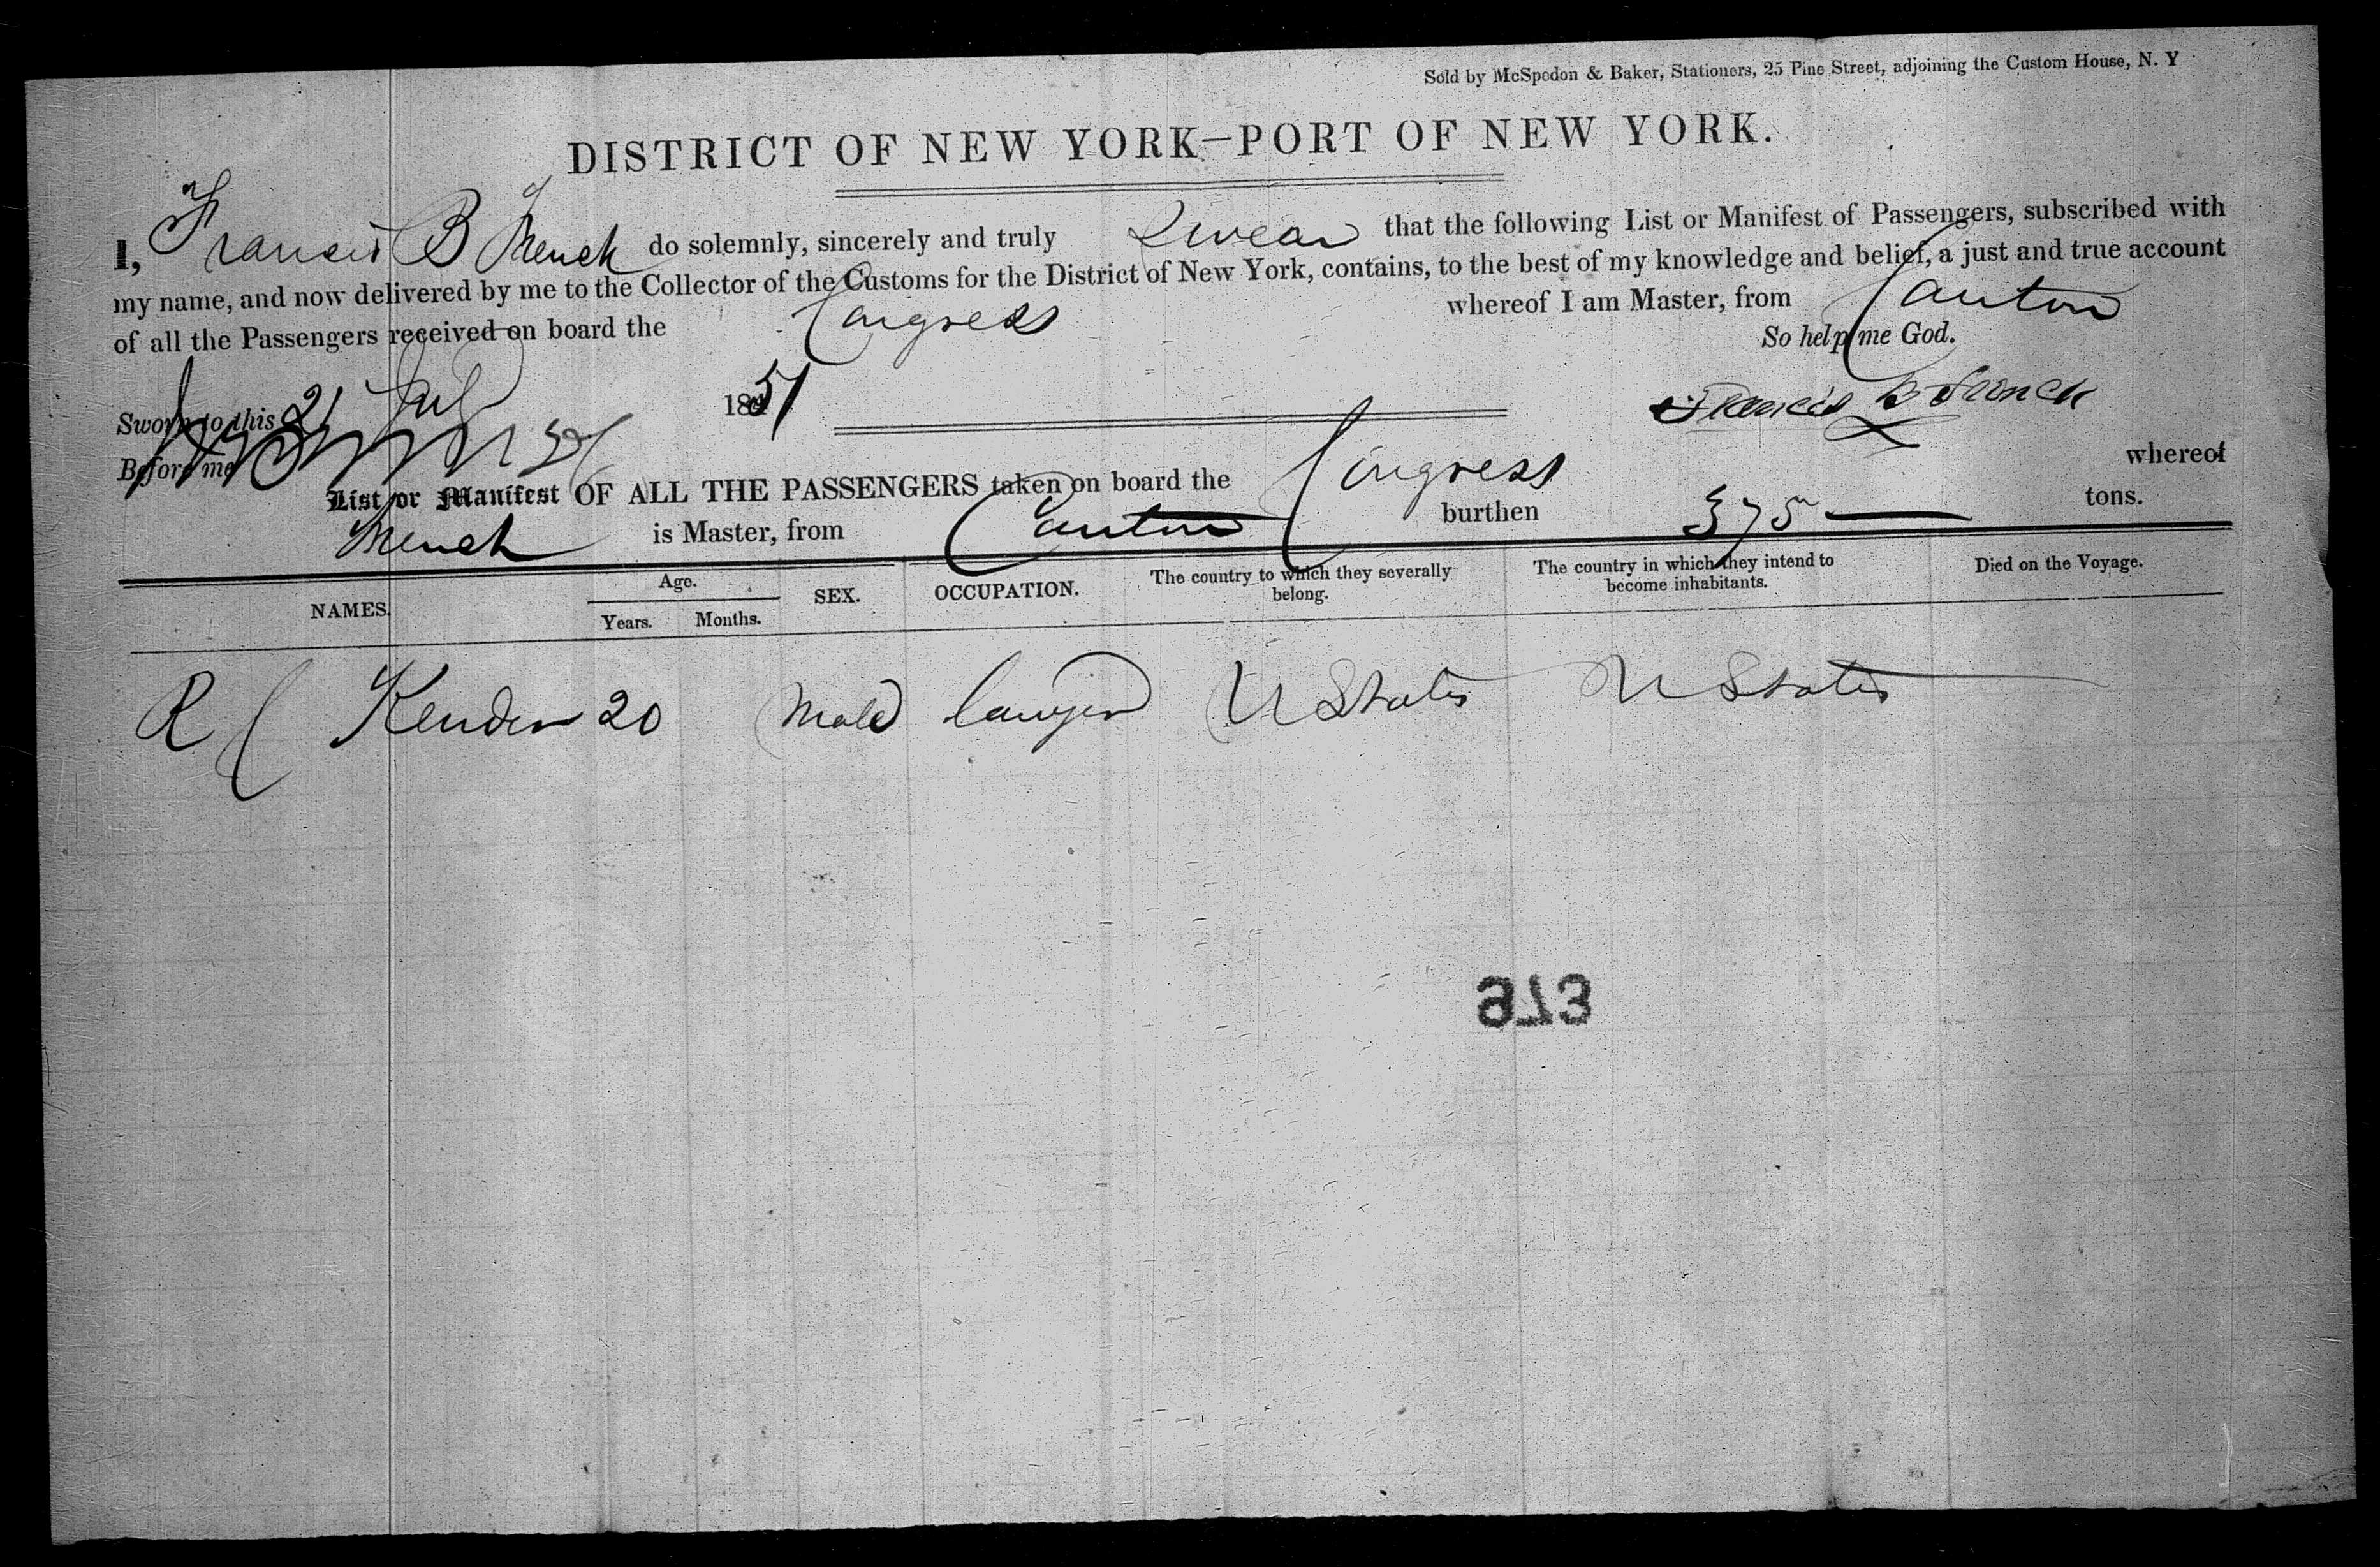 Sold by McSpedon & Baker, Stationers, 25 Pine Street, adjoining the Custom House, N. Y
DISTRICT OF NEW YORK—PORT OF NEW YORK.
I, Francis B French do solemnly, sincerely and truly Swear that the following List or Manifest of Passengers, subscribed with
my name, and now delivered by me to the Collector of the Customs for the District of New York, contains, to the best of my knowledge and belief, a just and true account
of all the Passengers received on board the Congress whereof I am Master, from Canton
So help me God.
Sworn to this 21 July 1851
Francis B French
Before me
List or Manifest OF ALL THE PASSENGERS taken on board the Congress whereof
French is Master, from Canton burthen 375 tons.
NAMES. Age. Years. Months. SEX. OCCUPATION. The country to which they severally belong. The country in which they intend to become inhabitants. Died on the Voyage.
R 20 Male lawyer U States U States